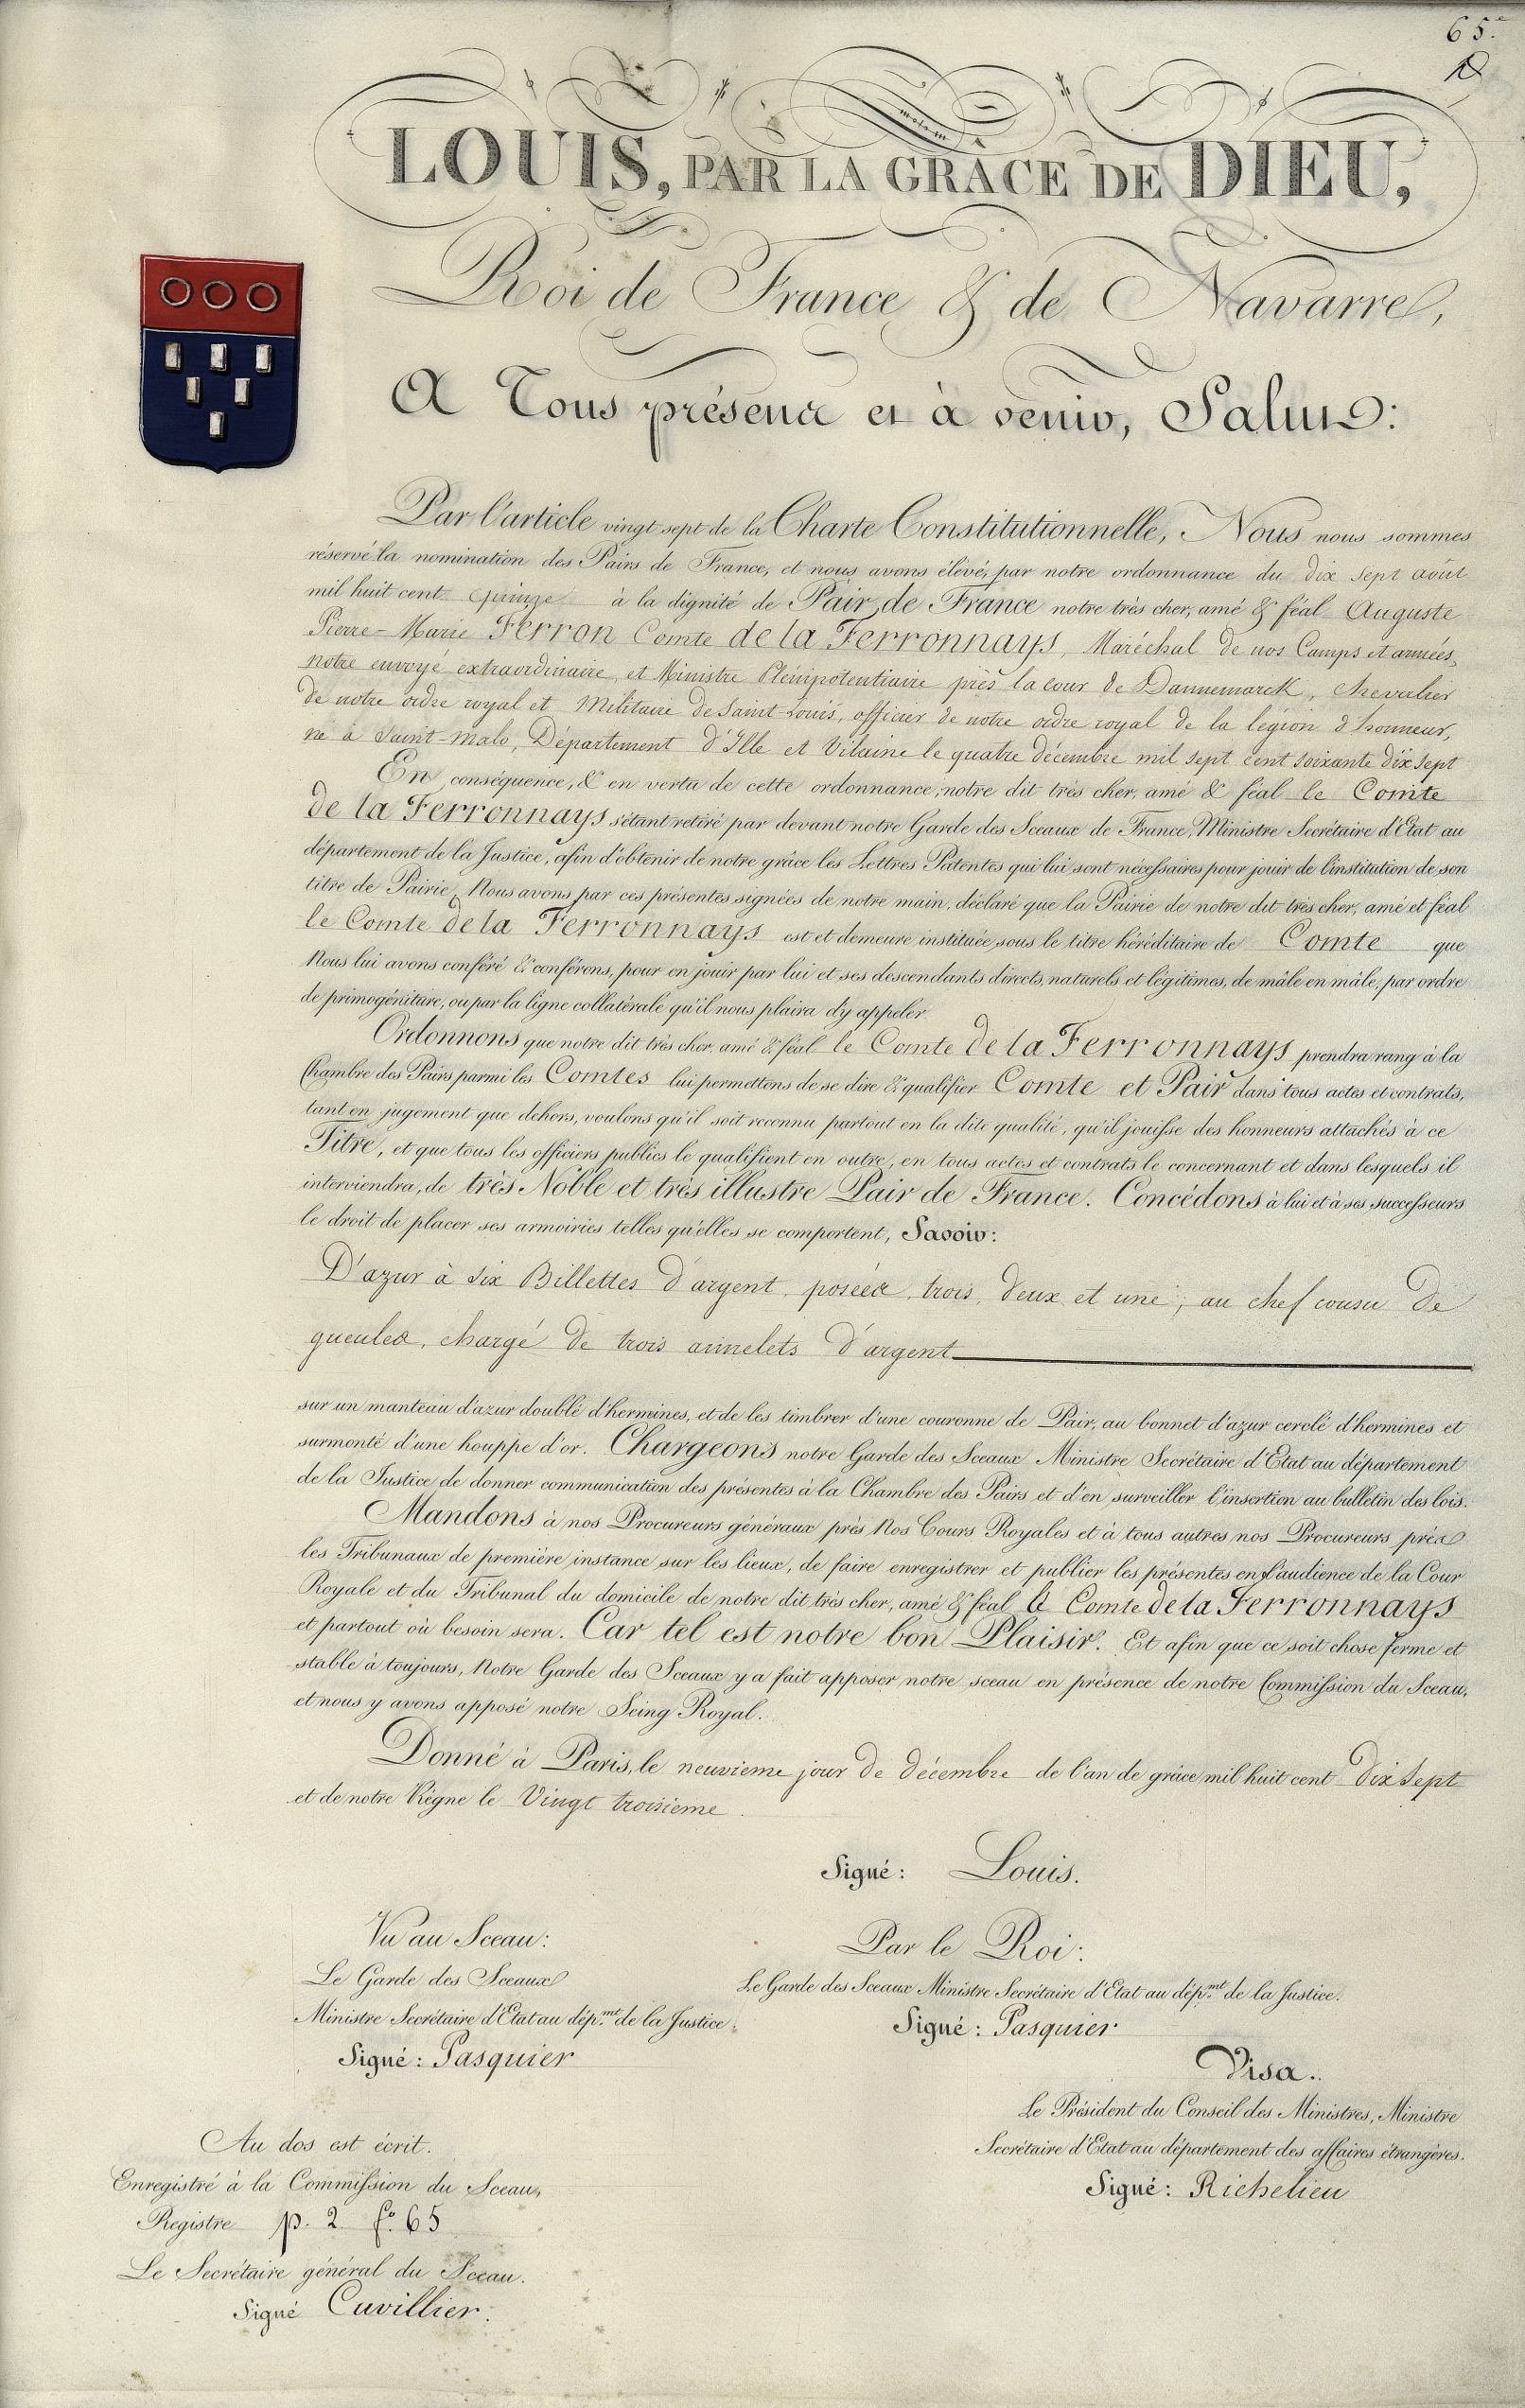 65.e
LOUIS, PAR LA GRÂCE DE DIEU,
Roi de France & de Navarre,
A Tous présens et à venir, Salut:
Par l'article vingt sept de la Charte Constitutionnelle, Nous nous sommes
réservé la nomination des Pairs de France, et nous avons élevé, par notre ordonnance du dix sept août
mil huit cent quinze à la dignité de Pair de France notre très cher, amé & féal Auguste
Pierre-Marie Ferron Comte de la Ferronnays, Maréchal de nos Camps et armées,
notre envoyé extraordinaire, et Ministre Plénipotentiaire près la cour de Dannemarck, chevalier
de notre ordre royal et Militaire de Saint-Louis, officier de notre ordre royal de la légion d'honneur,
né à Saint-malo, Département d'Ille et Vilaine le quatre décembre mil sept cent soixante dix sept
En conséquence, & en vertu de cette ordonnance, notre dit très cher, amé & féal le Comte
de la Ferronnays s'étant retiré par devant notre Garde des Sceaux de France, Ministre Secrétaire d'Etat au
département de la Justice, afin d'obtenir de notre grâce les Lettres Patentes qui lui sont nécessaires pour jouir de l'institution de son
titre de Pairie, Nous avons par ces présentes signées de notre main, déclaré que la Pairie de notre dit très cher, amé et féal
le Comte de la Ferronnays est et demeure instituée sous le titre héréditaire de Comte que
Nous lui avons conféré & conférons, pour en jouir par lui et ses descendants directs, naturels et légitimes, de mâle en mâle, par ordre
de primogéniture, ou par la ligne collatérale qu'il nous plaira d'y appeler
Ordonnons que notre dit très cher, amé & féal le Comte de la Ferronnays prendra rang à la
Chambre des Pairs parmi les Comtes lui permettons de se dire & qualifier Comte et Pair dans tous actes et contrats,
tant en jugement que dehors, voulons qu'il soit reconnu partout en la dite qualité, qu'il jouisse des honneurs attachés à ce
Titre, et que tous les officiers publics le qualifient en outre, en tous actes et contrats le concernant et dans lesquels il
interviendra, de très Noble et très illustre Pair de France. Concédons à lui et à ses successeurs
le droit de placer ses armoiries telles qu'elles se comportent, Savoir:
D'azur à six Billettes d'argent, posées, trois, deux et une, au chef cousu de
gueules, chargé de trois annelets d'argent
sur un manteau d'azur doublé d'hermines, et de les timbrer d'une couronne de Pair, au bonnet d'azur cerclé d'hermines et
surmonté d'une houppe d'or. Chargeons notre Garde des Sceaux Ministre Secrétaire d'Etat au département
de la Justice de donner communication des présentes à la Chambre des Pairs et d'en surveiller l'insertion au bulletin des lois.
Mandons à nos Procureurs généraux près Nos Cours Royales et à tous autres nos Procureurs près
les Tribunaux de première instance sur les lieux, de faire enregistrer et publier les présentes en l'audience de la Cour
Royale et du Tribunal du domicile de notre dit très cher, amé & féal le Comte de la Ferronnays
et partout où besoin sera. Car tel est notre bon Plaisir. Et afin que ce soit chose ferme et
stable à toujours, Notre Garde des Sceaux y a fait apposer notre sceau en présence de notre Commission du Sceau,
et nous y avons apposé notre Seing Royal.
Donné à Paris, le neuvième jour de décembre de l'an de grâce mil huit cent dix sept
et de notre Règne le Vingt troisième.
Signé: Louis.
Vu au Sceau:
Le Garde des Sceaux
Ministre Secrétaire d'Etat au dép.mt de la Justice.
Signé: Pasquier
Par le Roi:
Le Garde des Sceaux Ministre Secrétaire d'Etat au dép.mt de la Justice.
Signé: Pasquier
Visa.
Le Président du Conseil des Ministres, Ministre
Secrétaire d'Etat au département des affaires étrangères.
Signé: Richelieu
Au dos est écrit.
Enregistré à la Commission du Sceau,
Registre p. 2 f.o 65
Le Secrétaire général du Sceau.
Signé Cuvillier.